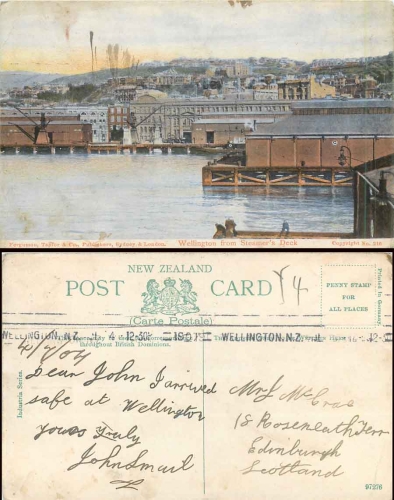 Fergusson, Taylor & Co., Publishers, Sydney & London. Wellington from Steamer's Deck Copyright No. 318
NEW ZEALAND
POST CARD
(Carte Postale)
PENNY STAMP
FOR
ALL PLACES
Printed in Germany.
WELLINGTON, N.Z. 4 12-50 WELLINGTON, N.Z. 12-5
throughout British Dominions.
Industria Series.
4/7/07
Dear John I arrived
safe at Wellington
yours truly
John Smail
Mr J McCrae
18 Roseneath Terr
Edinburgh
Scotland
97276